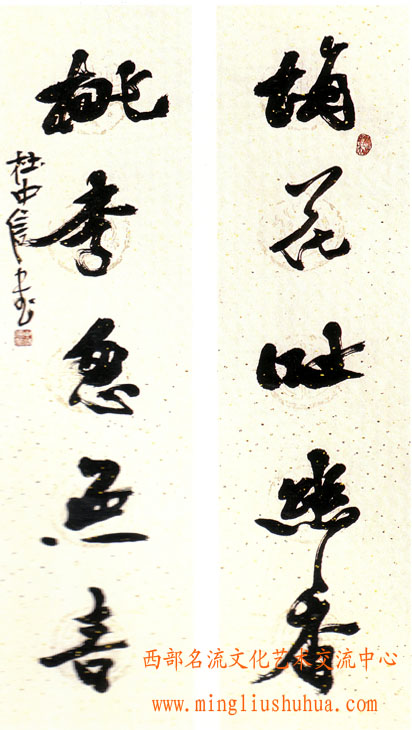 梅花吐幽香
桃李喜
杜中信书
西部名流文化艺术交流中心
www.mingliushuhua.com